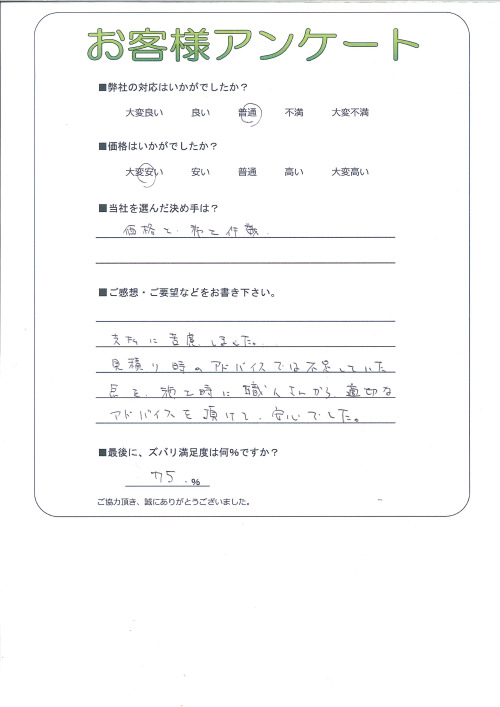 お客様アンケート
■弊社の対応はいかがでしたか？
大変良い 良い 普通 不満 大変不満
■価格はいかがでしたか？
大変安い 安い 普通 高い 大変高い
■当社を選んだ決め手は？
価格と、施工件数。
■ご感想・ご要望などをお書き下さい。
に苦慮しました。
見積り時のアドバイスでは不足していた
点を、施工時に職人さんから適切な
アドバイスを頂けて、安心でした。
■最後に、ズバリ満足度は何％ですか？
75.％
ご協力頂き、誠にありがとうございました。